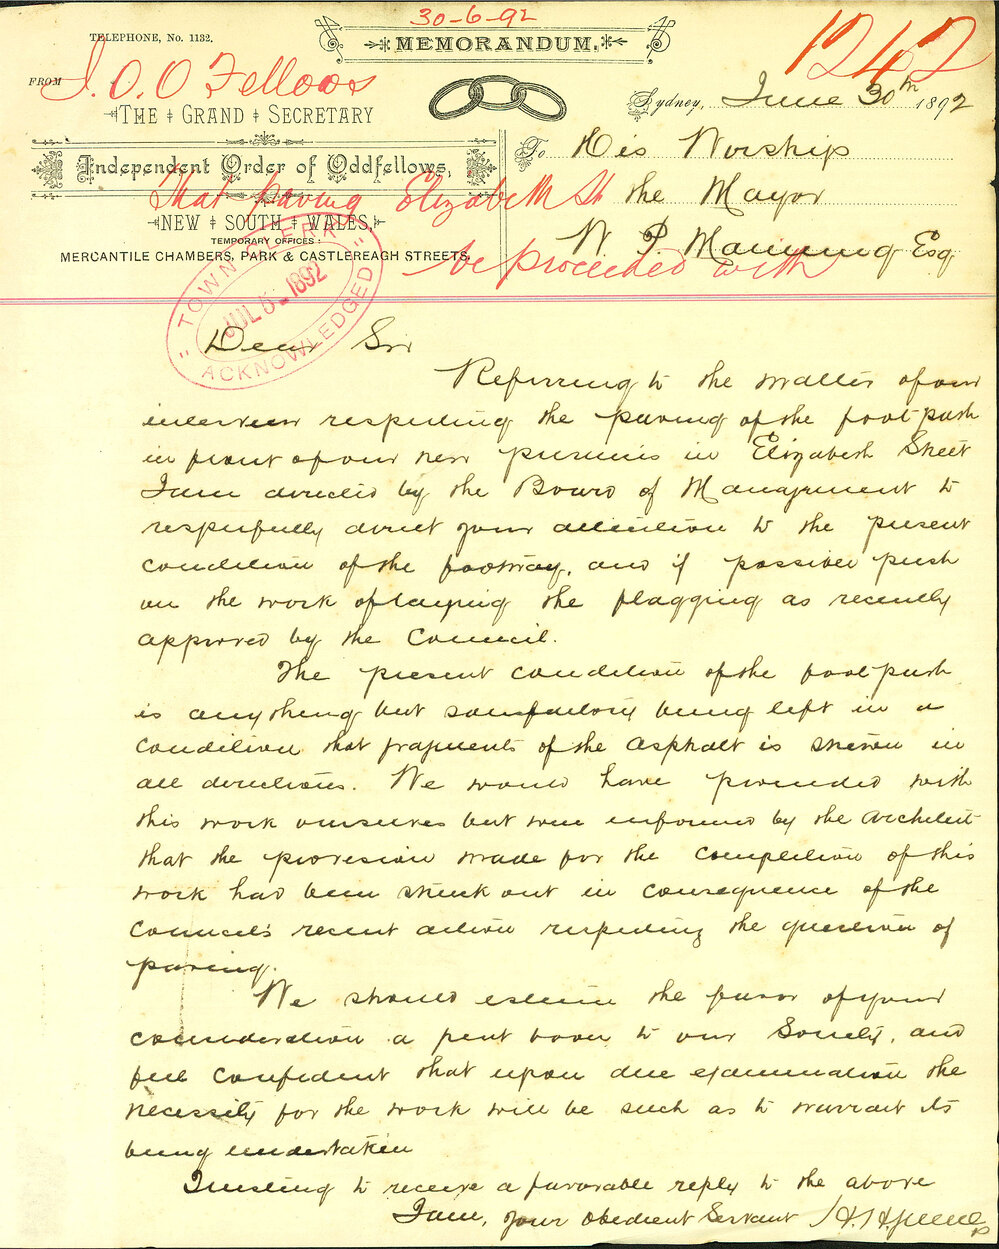 30-6-92
TELEPHONE, No. 1132.
MEMORANDUM.
1262
FROM
I. O. O Fellows
THE GRAND SECRETARY
Sydney, June 30th 1892
Independent Order of Oddfellows,
To His Worship
That paving Elizabeth St
the Mayor
NEW SOUTH WALES,
TEMPORARY OFFICES:
W. P. Manning Esq
MERCANTILE CHAMBERS, PARK & CASTLEREAGH STREETS.
be proceeded with
"TOWN CLERK"
JUL 5 - 1892
ACKNOWLEDGED
Dear Sir
Referring to the matter of our
interview respecting the paving of the foot path
in front of our new premises in Elizabeth Street
I am directed by the Board of Management to
respectfully direct your attention to the present
condition of the footway, and if possible push
on the work of laying the flagging as recently
approved by the Council.
The present condition of the foot path
is anything but satisfactory being left in a
condition that fragments of the asphalt is strewn in
all directions. We would have proceeded with
this work ourselves but were informed by the Architect
that the provision made for the completion of this
work had been struck out in consequence of the
Council's recent action respecting the question of
paving.
We should esteem the favor of your
consideration a great boon to our Society, and
feel confident that upon due examination the
necessity for the work will be such as to warrant its
being undertaken
Trusting to receive a favorable reply to the above
I am, your obedient Servant